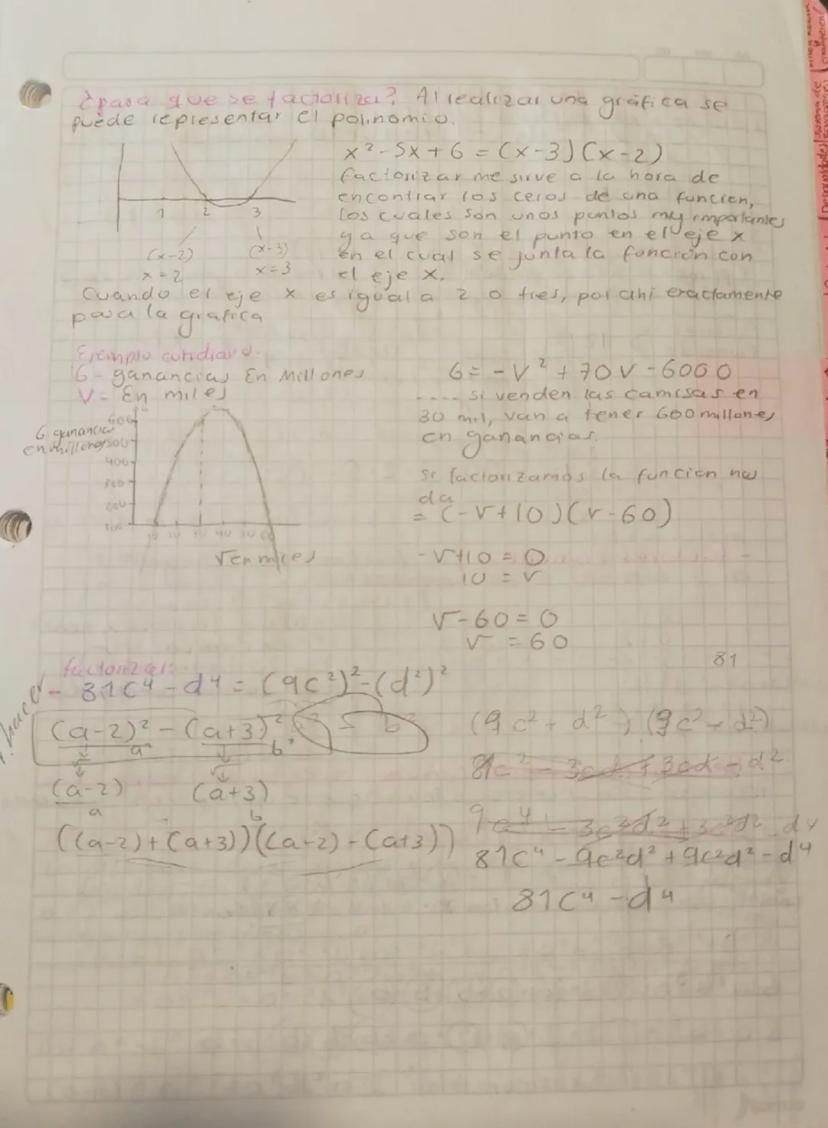 ¿para que se factoriza? Al realizar una gráfica se
puede representar el polinomio.
x² - 5x + 6 = (x-3)(x-2)
factorizar me sirve a la hora de
encontrar los ceros de una funcion,
los cuales son unos puntos muy importantes
ya que son el punto en el eje x
en el cual se junta la función con
el eje x.
1 2 3
(x-2) (x-3)
x=2 x=3
Cuando el eje x es igual a 2 o tres, por ahi exactamente
pasa la grafica
Ejemplo cotidiano.
G- ganancias En Millones
V- En miles
G = -V² + 70V - 6000
.... si venden las camisas en
30 mil, van a tener 600 millones
en ganancias.
G ganancias
en millones
600
500
400
300
200
100
V en miles
si factorizamos la funcion nos
da
= (-V+10)(V-60)
-V+10 = 0
10 = V
V-60 = 0
V = 60
81
factorizar:
- 81c⁴ - d⁴ = (9c²)² - (d²)²
(a-2)² - (a+3)²
a b
(a-2) (a+3)
a b
((a-2)+(a+3))((a-2)-(a+3))
(9c² + d²)(9c² - d²)
81c⁴ - 9c²d² + 9c²d² - d⁴
81c⁴ - d⁴